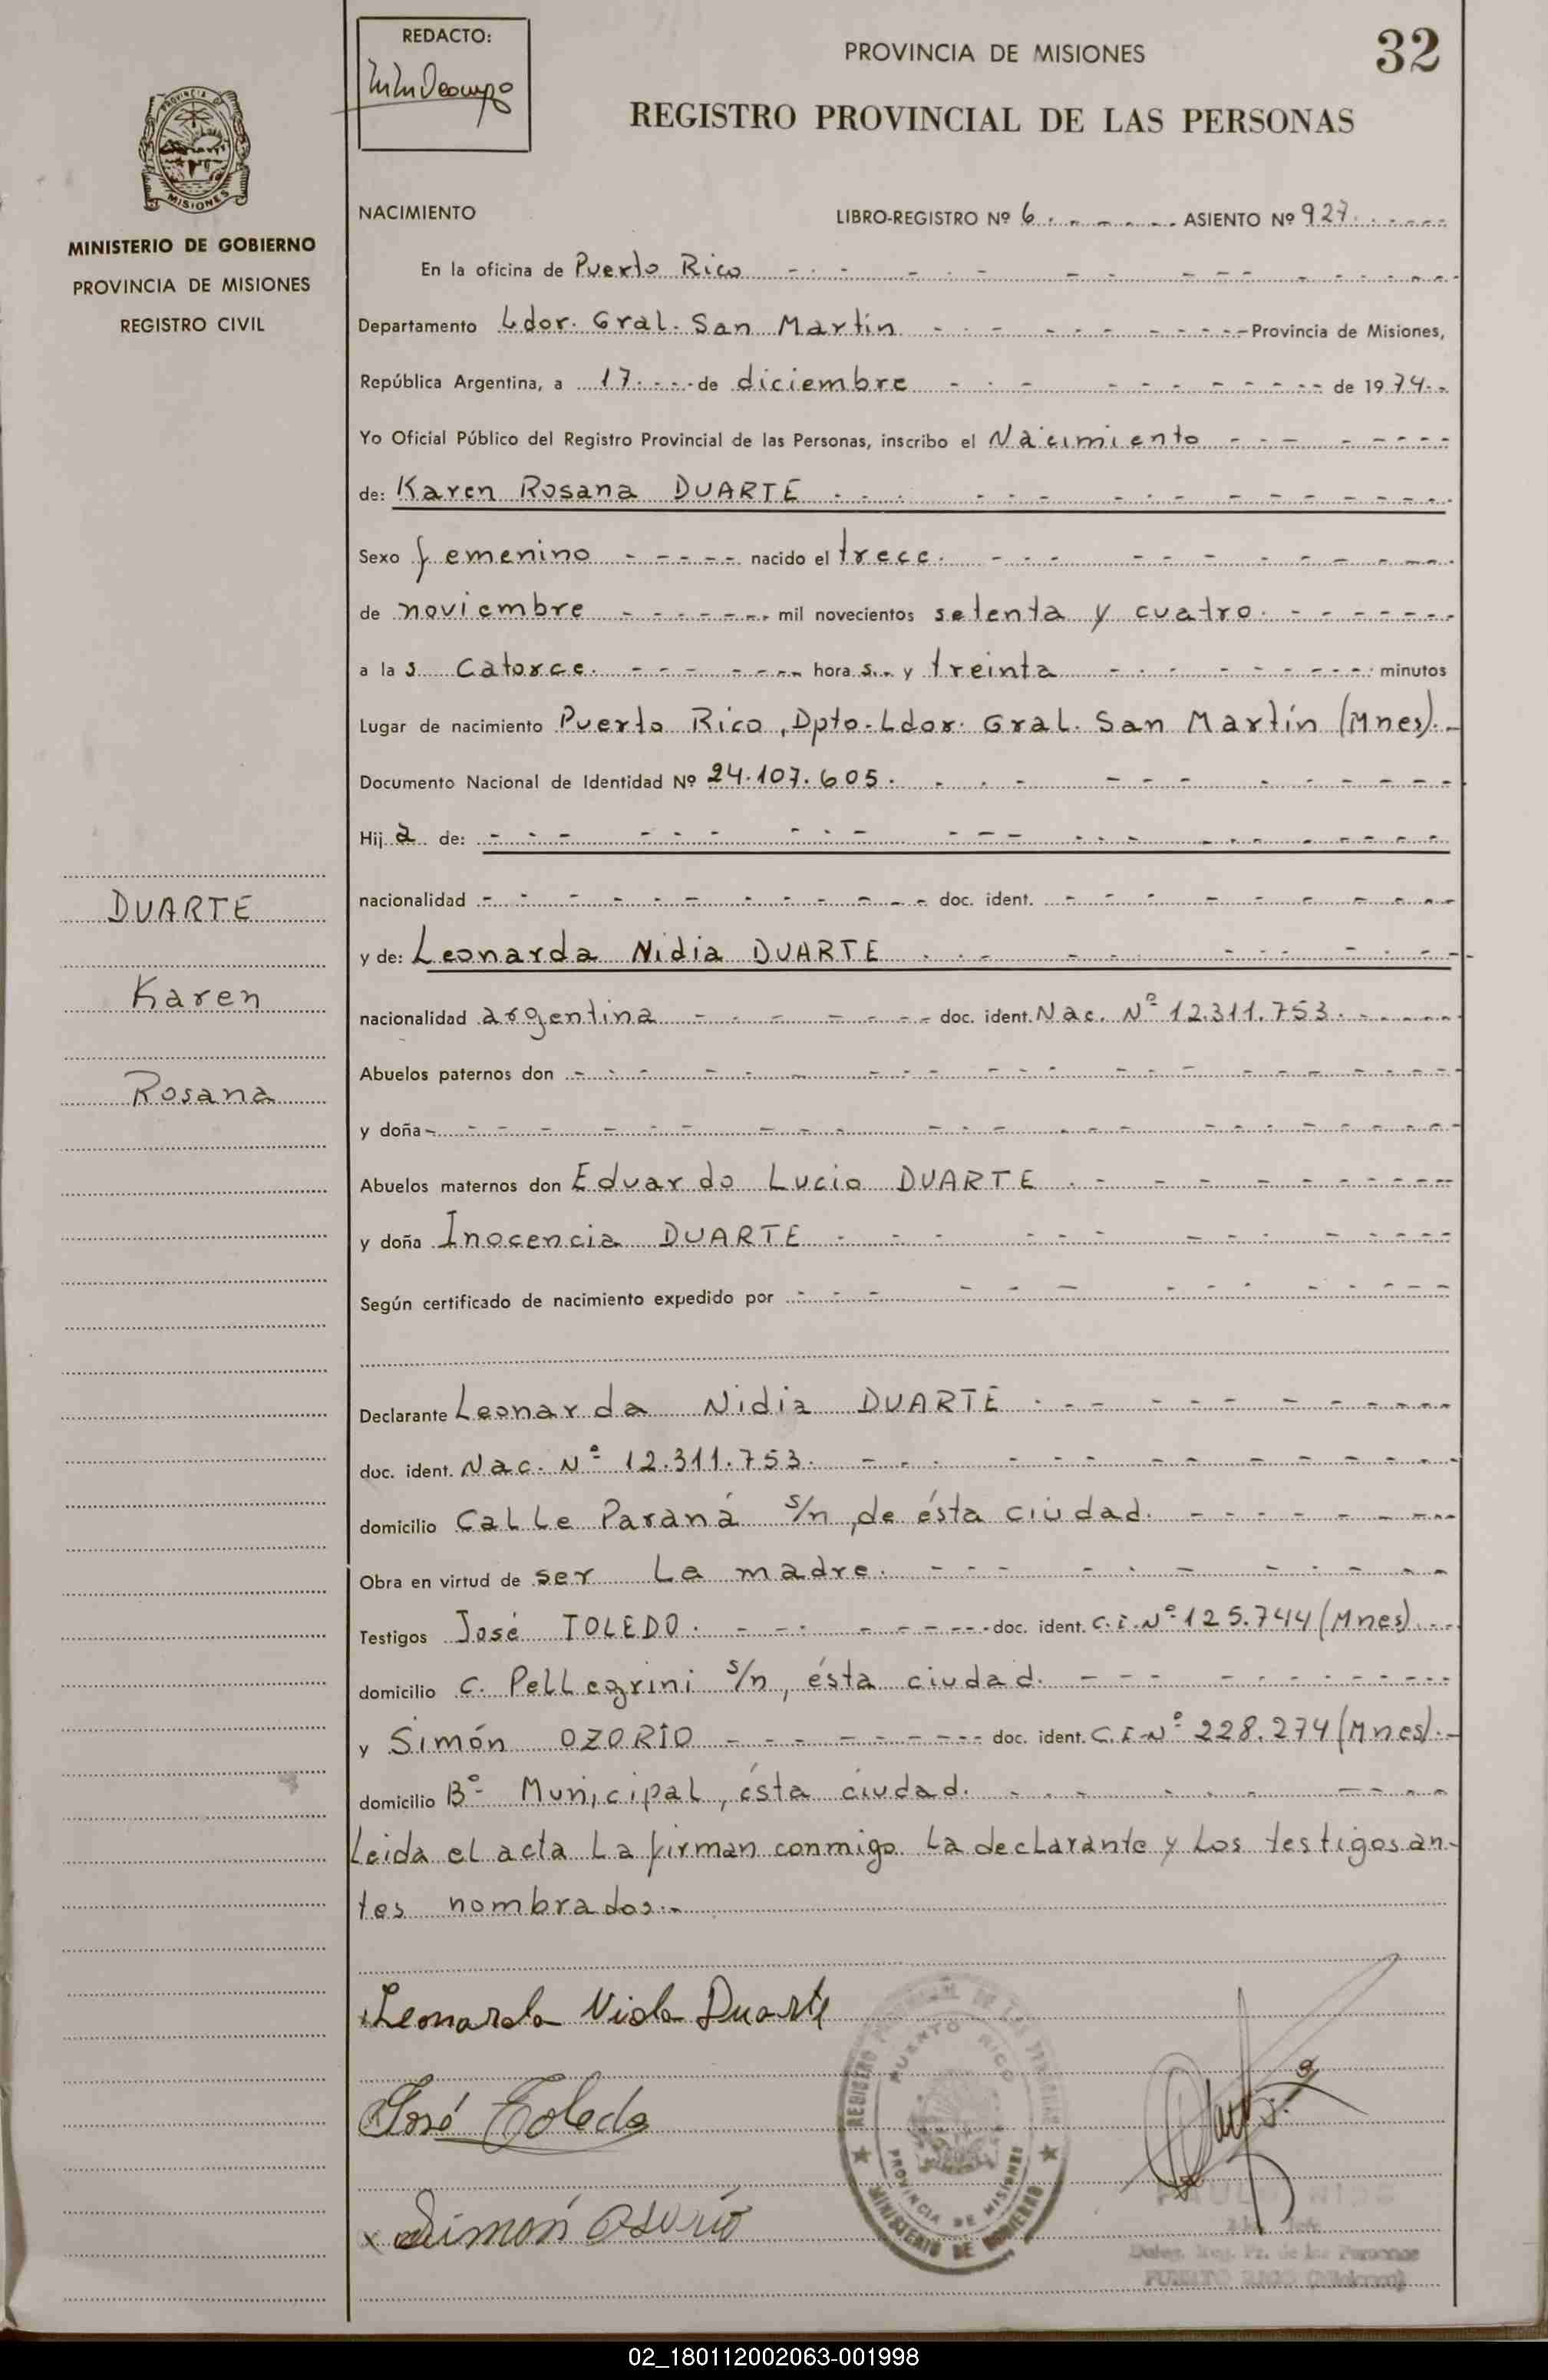 REDACTO:
PROVINCIA DE MISIONES
32
REGISTRO PROVINCIAL DE LAS PERSONAS
PROVINCIA DE
MISIONES
MINISTERIO DE GOBIERNO
PROVINCIA DE MISIONES
REGISTRO CIVIL
NACIMIENTO LIBRO-REGISTRO Nº 6 ASIENTO Nº 927
En la oficina de Puerto Rico
Departamento Ldor. Gral. San Martín Provincia de Misiones,
República Argentina, a 17 de diciembre de 1974.
Yo Oficial Público del Registro Provincial de las Personas, inscribo el Nacimiento
de: Karen Rosana DUARTE
Sexo femenino nacido el trece
de noviembre mil novecientos setenta y cuatro.
a las Catorce. horas. y treinta minutos
Lugar de nacimiento Puerto Rico, Dpto. Ldor. Gral. San Martín (Mnes).
Documento Nacional de Identidad Nº 24.107.605.
Hija de:
nacionalidad doc. ident.
y de: Leonarda Nidia DUARTE
nacionalidad argentina doc. ident. Nac. Nº 12.311.753.
Abuelos paternos don
y doña
Abuelos maternos don Eduardo Lucio DUARTE
y doña Inocencia DUARTE
Según certificado de nacimiento expedido por
Declarante Leonarda Nidia DUARTE
doc. ident. Nac. Nº 12.311.753.
domicilio Calle Paraná s/n, de ésta ciudad.
Obra en virtud de ser La madre.
Testigos José TOLEDO. doc. ident. C.I. Nº 125.744 (Mnes)
domicilio C. Pellegrini s/n, ésta ciudad.
y Simón OZORIO doc. ident. C.I. Nº 228.274 (Mnes).
domicilio Bº Municipal, ésta ciudad.
Leida el acta La firman conmigo La declarante y Los testigos an-
tes nombrados.
DUARTE
Karen
Rosana
Leonarda Nidia Duarte
José Toledo
Simón Osorio
REGISTRO PROVINCIAL DE LAS PERSONAS
PUERTO RICO
PROVINCIA DE MISIONES
MINISTERIO DE GOBIERNO
Deleg. Reg. Pr. de las Personas
PUERTO RICO (Misiones)
02_180112002063-001998